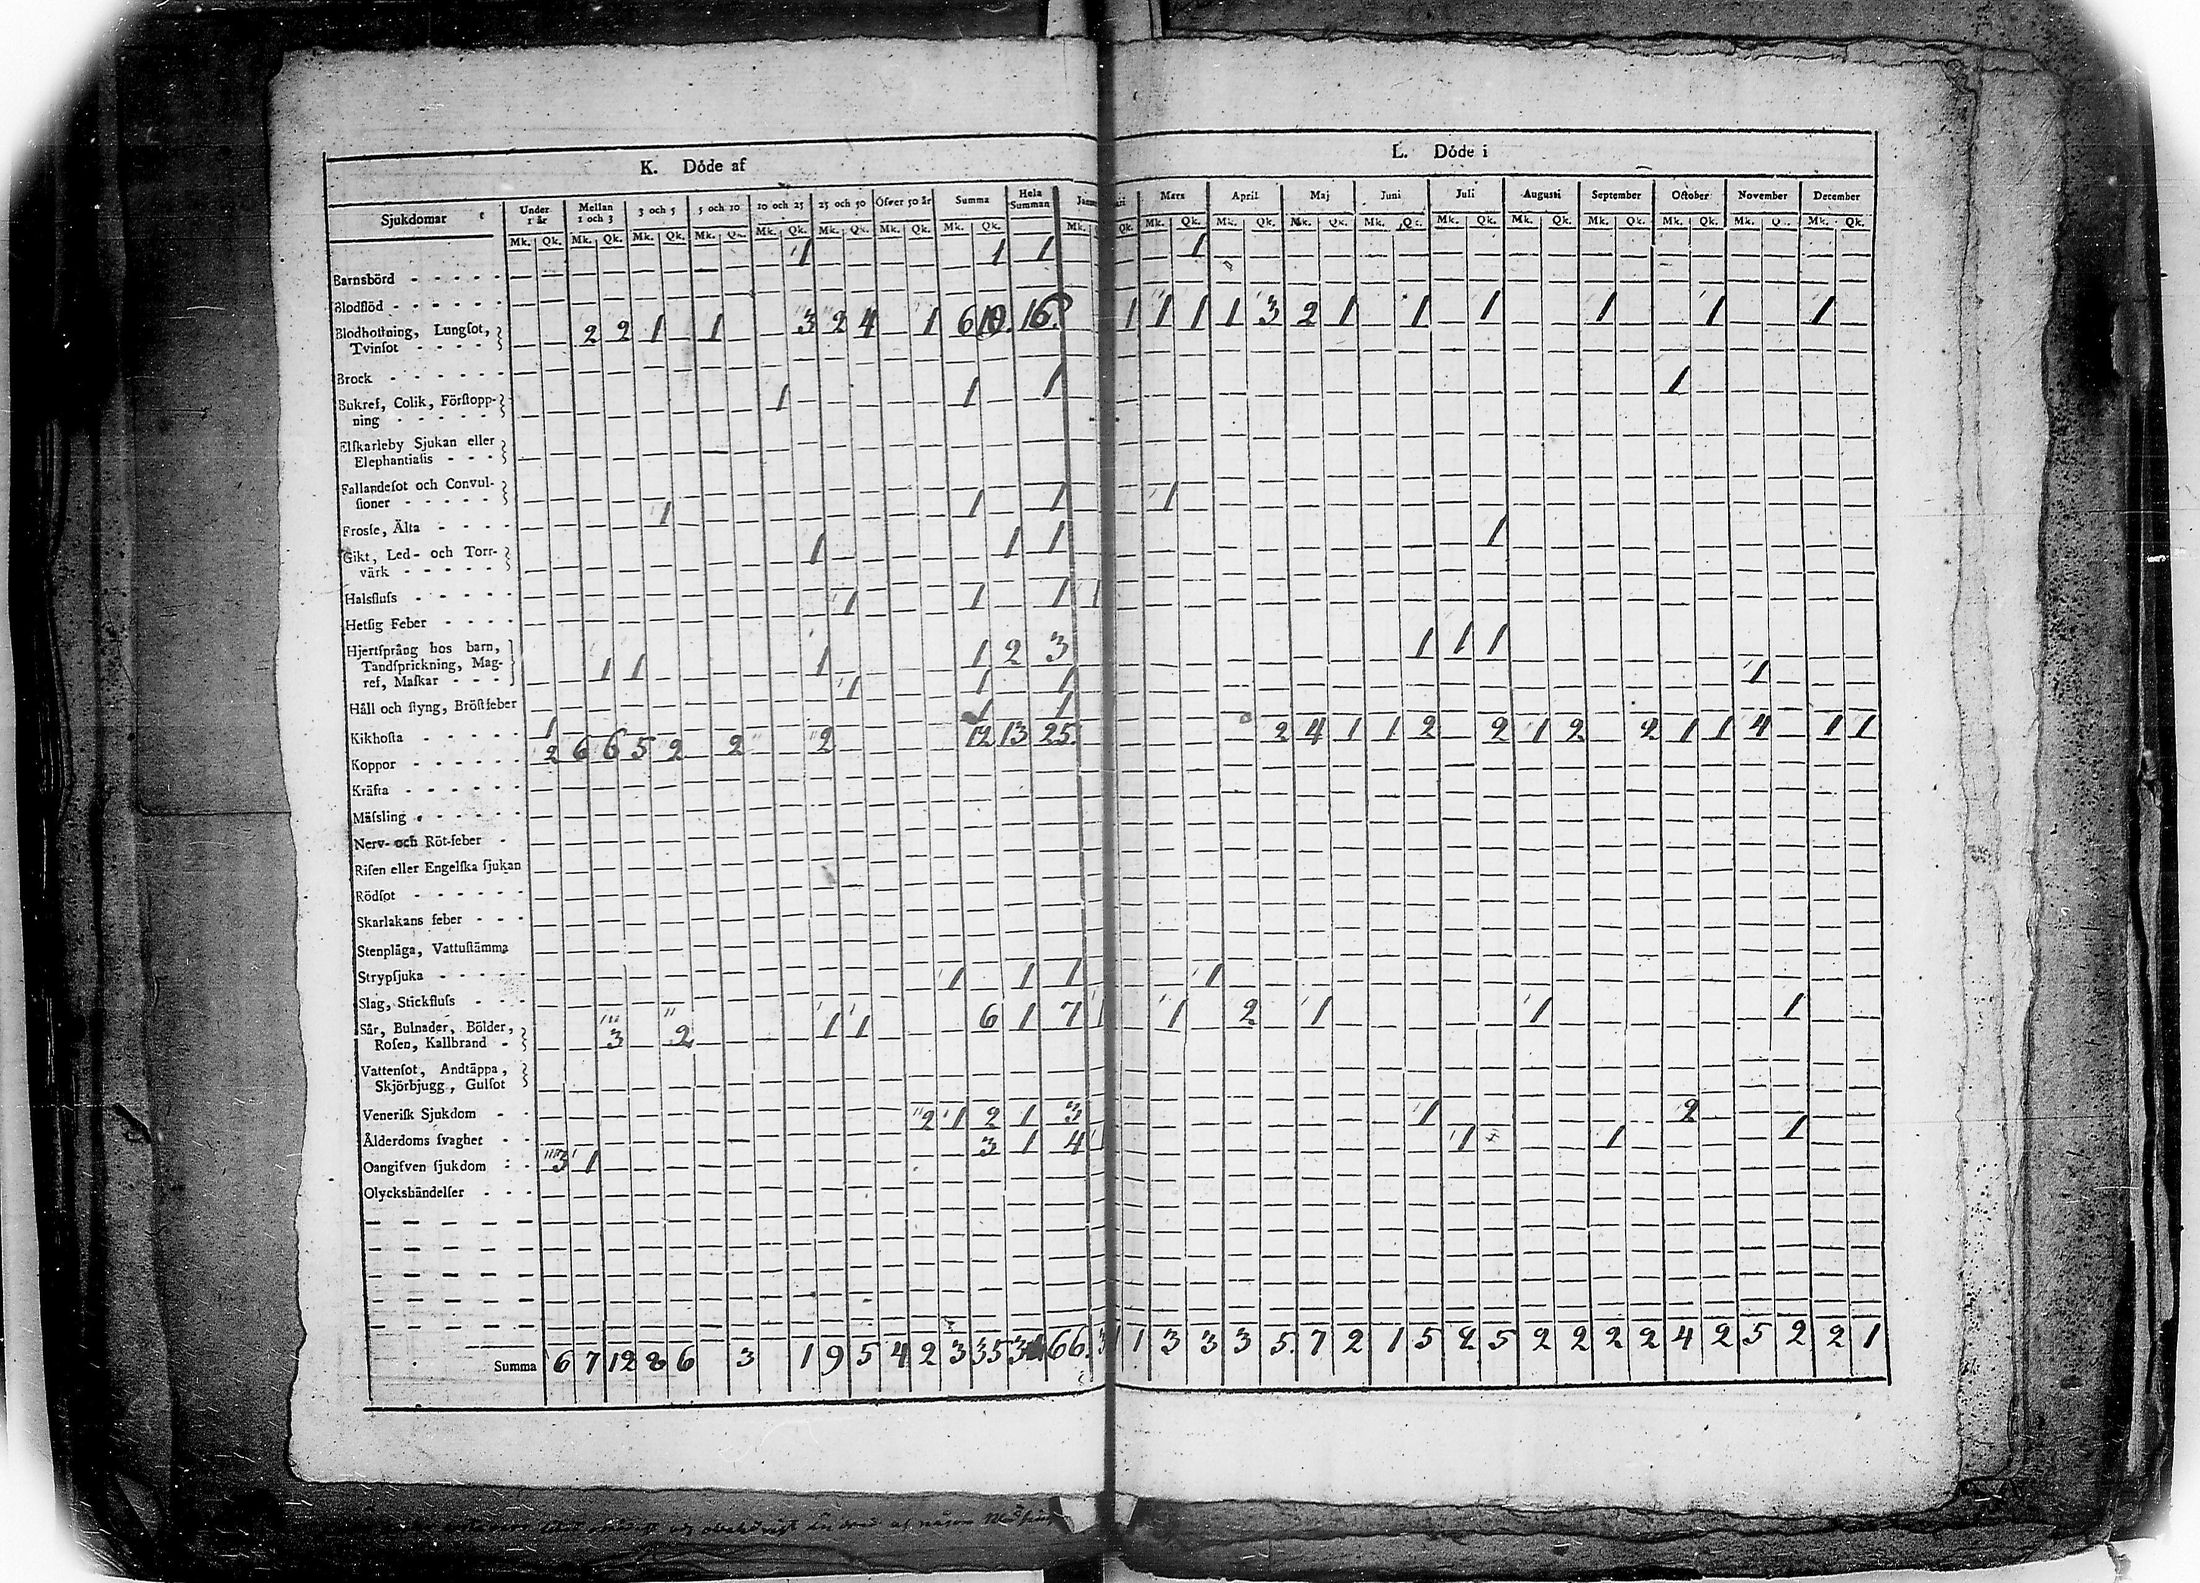 K. Döde af
L. Döde i
Sjukdomar
Under 1 år
Mellan 1 och 3
3 och 5
5 och 10
10 och 25
25 och 50
Öfver 50 år
Summa
Hela Summan
Mars
April
Maj
Juni
Juli
Augusti
September
October
November
December
Mk. Qk. Mk. Qk. Mk. Qk. Mk. Qk. Mk. Qk. Mk. Qk. Mk. Qk. Mk. Qk. Mk. Qk. Mk. Qk. Mk. Qk. Mk. Qk. Mk. Qk. Mk. Qk. Mk. Qk. Mk. Qk. Mk. Qk. Mk. Qk. Mk. Qk.
Barnsbörd 1 1 1 1
Blodflöd
Blodhostning, Lungsot, Tvinsot 2 2 1 1 3 2 4 1 6 10 16 1 1 1 1 3 2 1 1 1 1 1 1
Brock
Bukref, Colik, Förstoppning 1 1 1 1
Elfkarleby Sjukan eller Elephantiasis
Fallandesot och Convulsioner 1 1 1 1
Frosse, Älta
Gikt, Led- och Torrvärk 1 1 1 1
Halsfluss 1 1 1 1
Hetsig Feber
Hjertsprång hos barn, Tandsprickning, Magref, Maskar 1 1 1 1 2 3 1 1 1
Håll och styng, Bröstfeber 1 1 1 1
Kikhosta 1 1 1
Koppor 2 6 6 5 2 2 2 12 13 25 2 4 1 1 2 2 1 2 2 1 1 4 1 1
Kräfta
Mässling
Nerv- och Röt-feber
Risen eller Engelska sjukan
Rödsot
Skarlakans feber
Stenplåga, Vattustämma
Strypsjuka
Slag, Stickfluss 1 1 1 1
Sår, Bulnader, Bölder, Rosen, Kallbrand 3 2 1 1 6 1 7 1 1 2 1 1 1
Vattensot, Andtäppa, Skjörbjugg, Gulsot
Venerisk Sjukdom
Ålderdoms svaghet 2 1 2 1 3 1 2
Oangifven sjukdom 3 1 3 1 4 1 1 1 1
Olyckshändelser
Summa 6 7 12 8 6 3 1 9 5 4 2 3 35 31 66 3 1 3 3 3 5 7 2 1 5 2 5 2 2 2 2 4 2 5 2 2 1